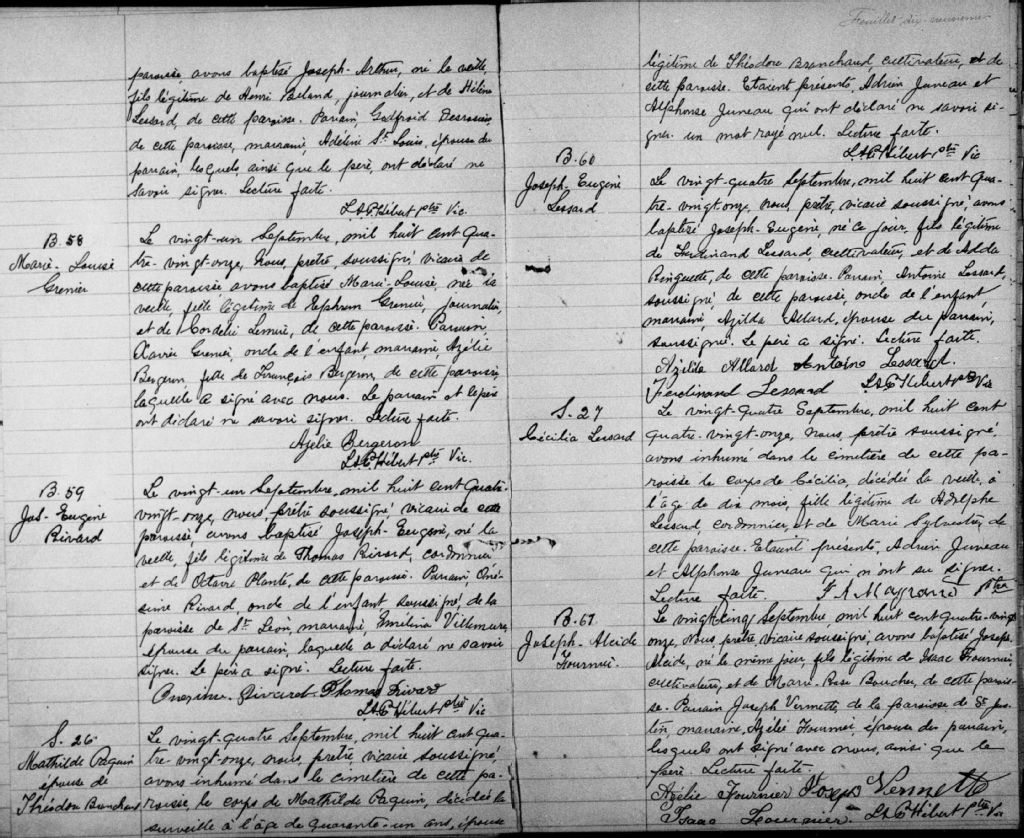 paroisse, avons baptisé Joseph-Arthur, né la veille,
fils légitime de Henri Beland, journalier, et de Hélène
Lessard, de cette paroisse. Parrain, Godfroid Desrosiers
de cette paroisse, marraine, Adeline St. Louis, épouse du
parrain, lesquels ainsi que le père, ont déclaré ne
savoir signer. Lecture faite.
Ls P Hébert ptre Vic.
B. 58
Marie-Louise
Grenier
Le vingt-un Septembre, mil huit cent qua-
tre-vingt-onze, Nous, prêtre, soussigné vicaire de
cette paroisse avons baptisé Marie-Louise, née la
veille, fille légitime de Ephrem Grenier, journalier,
et de Cordelie Lemire, de cette paroisse. Parrain,
Xavier Grenier, oncle de l'enfant marraine, Azélie
Bergeron, fille de François Bergeron, de cette paroisse,
laquelle a signé avec nous. Le parrain et le père
ont déclaré ne savoir signer. Lecture faite.
Azelie Bergeron
Ls P Hébert ptre Vic.
B. 59
Jos-Eugène
Rivard
Le vingt-un Septembre, mil huit cent Quatre-
vingt-onze, nous, prêtre soussigné vicaire de cette
paroisse, avons baptisé Joseph-Eugène, né la
veille, fils légitime de Thomas Rivard, cordonnier
et de Octavie Plante, de cette paroisse. Parrain, Oné-
sime Rivard, oncle de l'enfant soussigné, de la
paroisse de St. Léon, marraine, Emélina Villemure,
épouse du parrain, laquelle a déclaré ne savoir
signer. Le père a signé. Lecture faite.
Onesime Rivard Thomas Rivard
Ls P Hébert ptre Vic
S. 26
Mathilde Paquin
épouse de
Théodore Branchaud
Le vingt-quatre Septembre, mil huit cent qua-
tre-vingt-onze, nous, prêtre vicaire soussigné,
avons inhumé dans le cimetière de cette pa-
roisse, le corps de Mathilde Paquin, décédée la
surveille à l'âge de quarante-un ans, épouse
Feuillet dix-neuvième
légitime de Théodore Branchaud, cultivateur, et de
cette paroisse. Etaient présents, Adrien Juneau et
Alphonse Juneau qui ont déclaré ne savoir si-
gner un mot rayé nul. Lecture faite.
Ls P Hébert ptre Vic
B. 60
Joseph-Eugène
Lessard
Le vingt-quatre Septembre, mil huit cent Qua-
tre-vingt-onze, nous, prêtre, vicaire soussigné, avons
baptisé Joseph-Eugène, né ce jour, fils légitime
de Ferdinand Lessard, cultivateur, et de Adda
Ringuette, de cette paroisse. Parrain, Antoine Lessard,
soussigné de cette paroisse, oncle de l'enfant,
marraine, Azilda Allard, épouse du parrain,
soussigné. Le père a signé. Lecture faite.
Azilda Allard Antoine Lessard.
Ferdinand Lessard Ls P Hébert ptre Vic
S. 27
Cécilia Lessard
Le vingt-Quatre Septembre, mil huit cent
Quatre-vingt-onze, nous, prêtre soussigné,
avons inhumé dans le cimetière de cette pa-
roisse le corps de Cécilia, décédée la veille, à
l'âge de dix mois, fille légitime de Adolphe
Lessard cordonnier, et de Marie Sylvestre, de
cette paroisse. Etaient présents, Adrien Juneau
et Alphonse Juneau qui n'ont su signer.
Lecture faite. F. A. Mayrand Ptre
B. 61
Joseph-Alcide
Fournier.
Le vingt-cinq Septembre, mil huit cent Quatre-vingt-
onze, Nous prêtre vicaire soussigné, avons baptisé Joseph-
Alcide, né le même jour, fils légitime de Isaac Fournier,
cultivateur, et de Marie-Rose Boucher, de cette parois-
se. Parrain Joseph Vermette, de la paroisse de St Jus-
tin, marraine, Azélie Fournier épouse du parrain,
lesquels ont signé avec nous, ainsi que le
père. Lecture faite.
Azélie Fournier Joseph Vermette
Isaac Fournier Ls P Hébert Ptre Vic